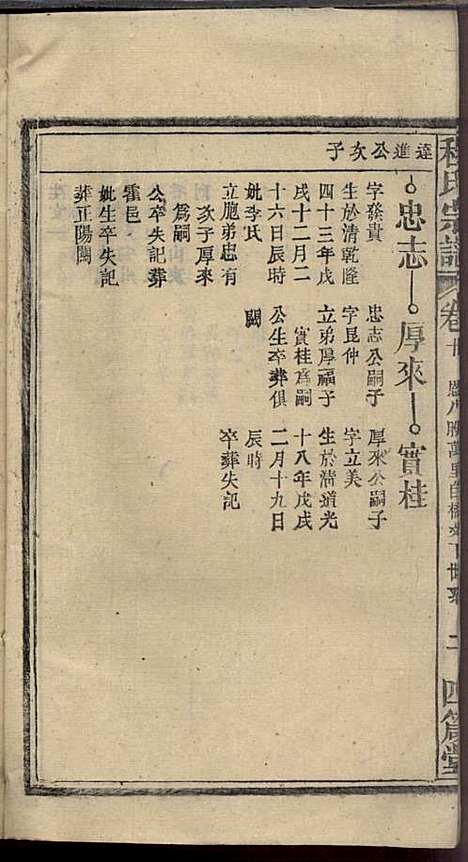 程氏宗譜 卷廿 萬里 四箴堂
達進公次子
忠志 厚來 實桂
字發貴
生於清乾隆
四十三年戊
戌十二月二
十六日辰時
妣李氏
立胞弟忠有
次子厚來
爲嗣
公卒失記葬
霍邑
妣生卒失記
葬正陽關
忠志公嗣子
字昆仲
立弟厚福子
實桂爲嗣
公生卒葬俱
闕
厚來公嗣子
字立美
生於清道光
十八年戊戌
二月十九日
辰時
卒葬失記